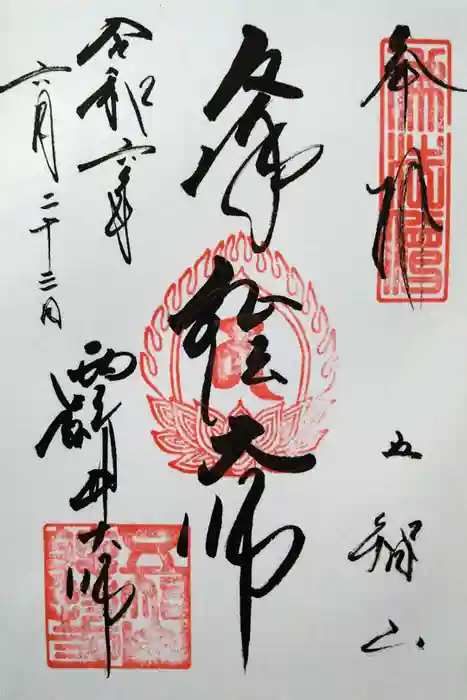 奉拝
五智山
厄除弘法大師
令和六年
六月二十三日
西新井大師